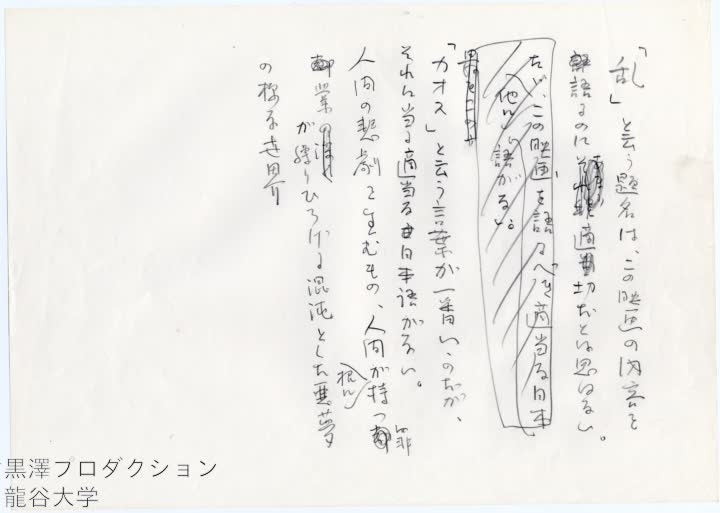 「乱」と云う題名は、この映画の内容を
語るのに適切だとは思はない。
たゞ、この映画を語るべき適当な日本
語がない。
他に
「カオス」と云う言葉が一番いゝのだが、
それに当る適当な日本語がない。
人間の悲劇を生むもの、人間が持つ
根
罪
業が繰りひろげる混沌とした悪夢
の様な世界
黒澤プロダクション
龍谷大学